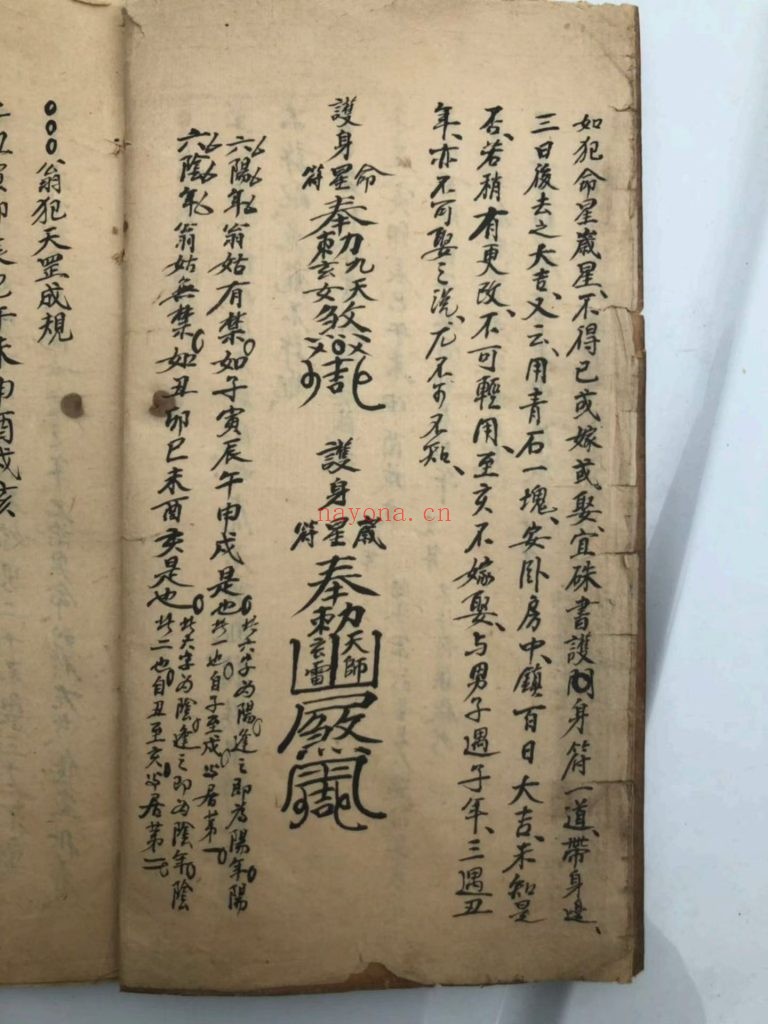 如犯命星歲星、不得已或嫁或娶、宜硃書護身符一道、帶身邊、
三日後去之大吉、又云、用青石一塊、安卧房中、鎮百日大吉、未知是
否、若稍有更改、不可輕用、至亥不嫁娶、与男子遇子年、三遇丑
年、亦不可娶之說、尤不可不知、
護身命星符 奉勅九天玄女煞
護身歲星符 奉勅天師玄雷
六陽年翁姑有禁如子寅辰午申戌是也 此六字為陽逢之即為陽年陽
此一也自子至戌皆居第一
六陰年翁姑無禁如丑卯巳未酉亥是也 此六字為陰逢之即為陰年陰
此二也自丑至亥皆居第二
翁犯天罡成規
丑寅卯辰巳午未申酉戌亥
nayona.cn